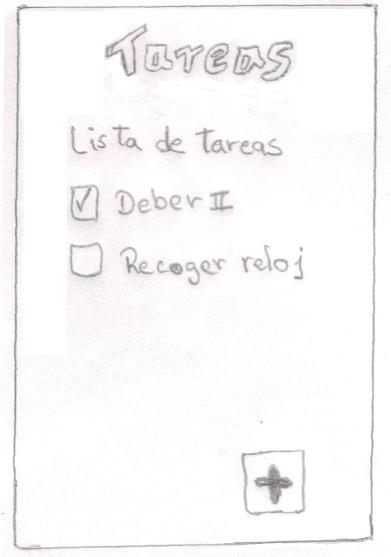 Tareas
Lista de tareas
Deber II
Recoger reloj